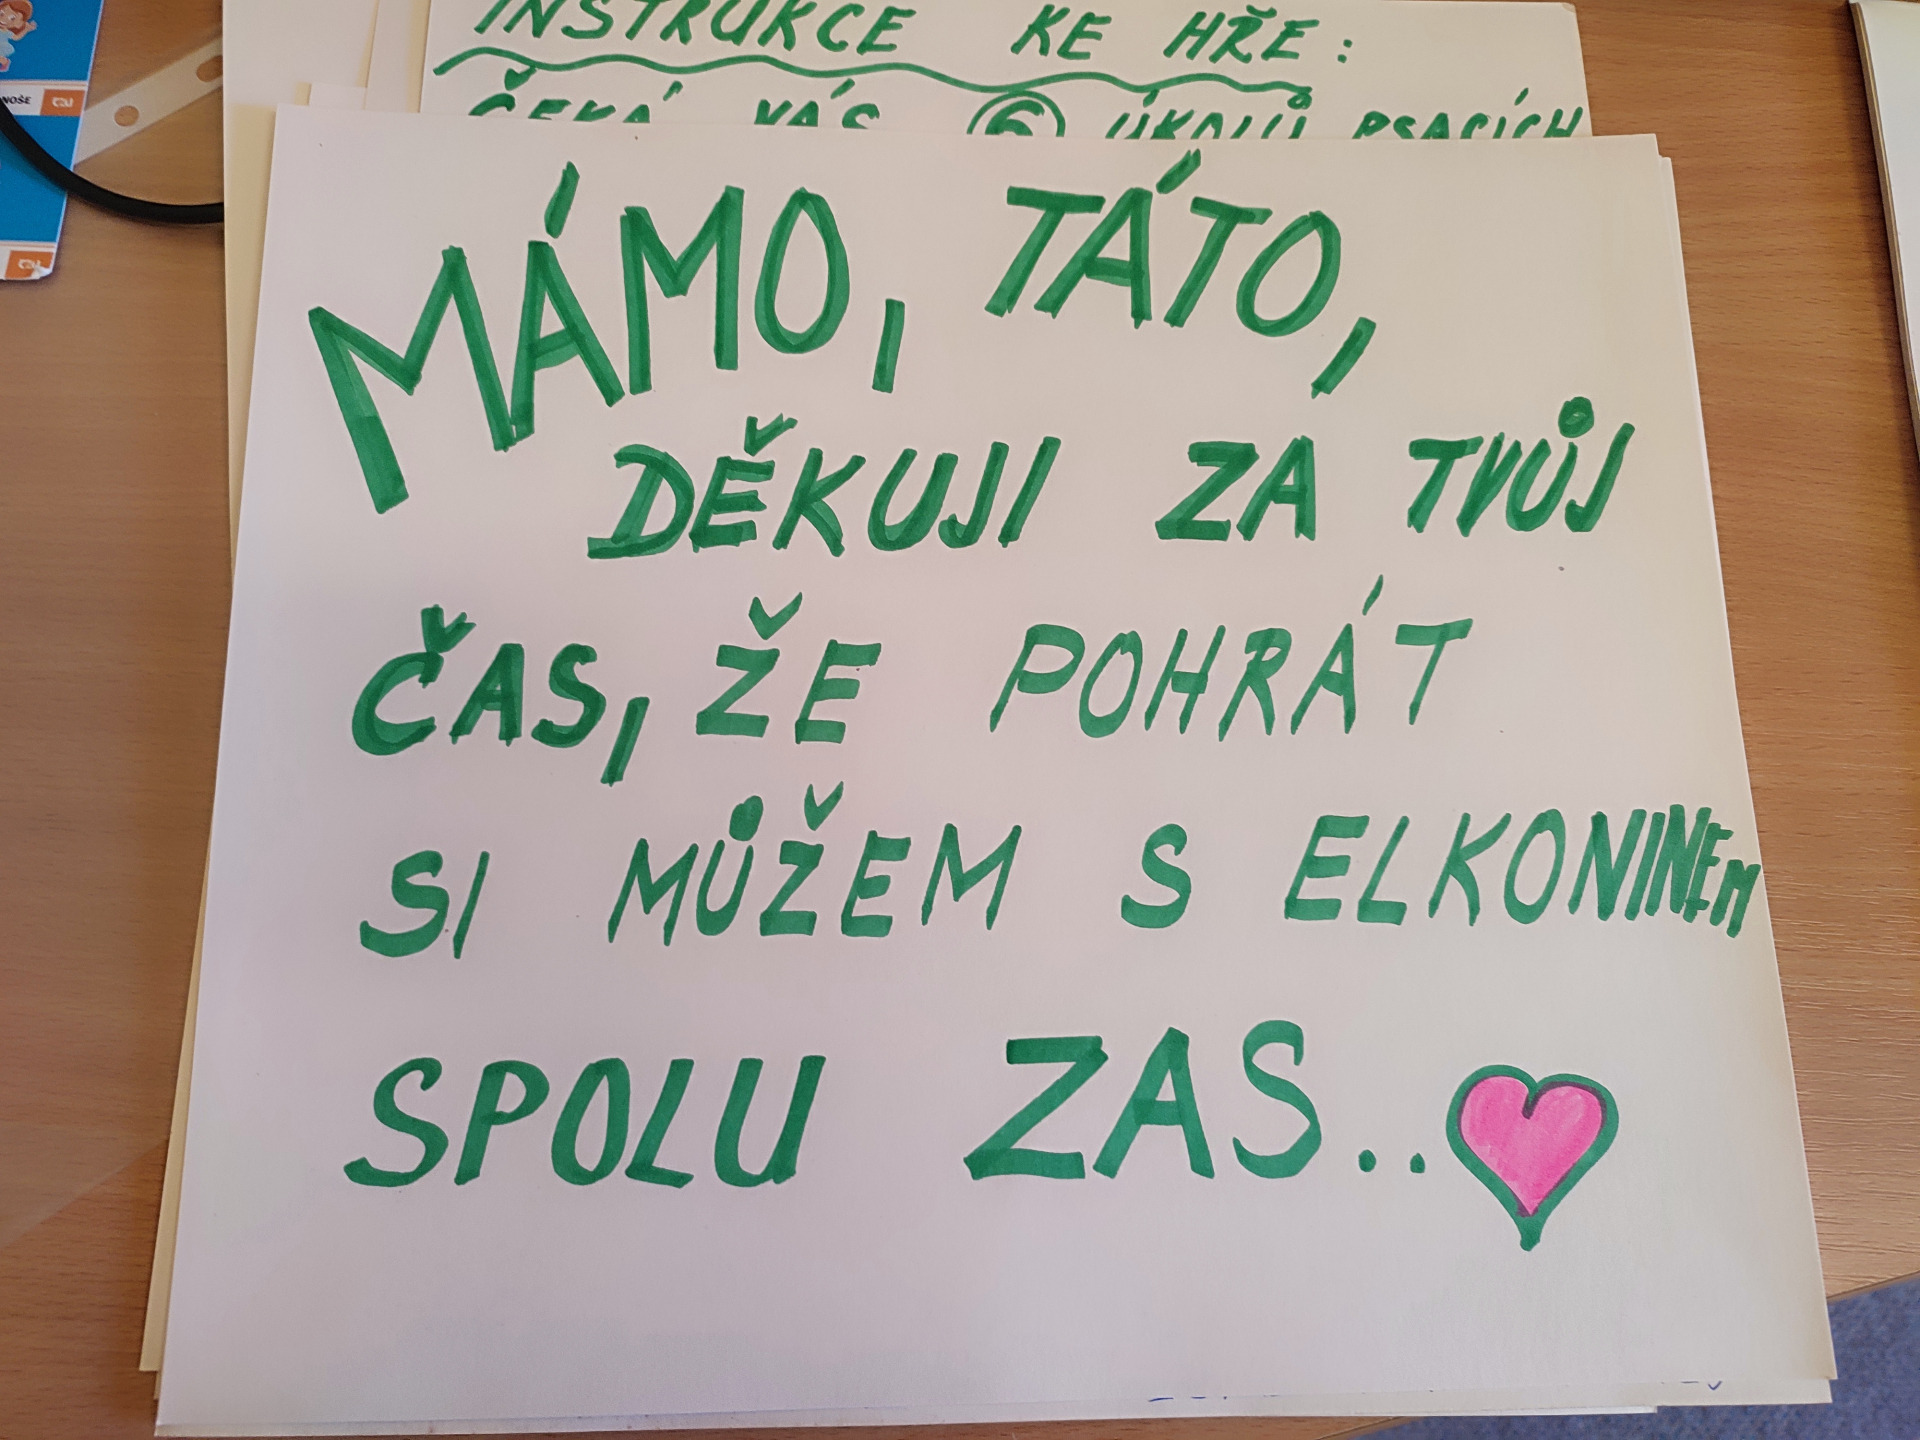 NOŠE
INSTRUKCE KE HŘE:
ČEKÁ VÁS 6 ÚKOLŮ PSACÍCH
MÁMO, TÁTO,
DĚKUJI ZA TVŮJ
ČAS, ŽE POHRÁT
SI MŮŽEM S ELKONINEM
SPOLU ZAS..